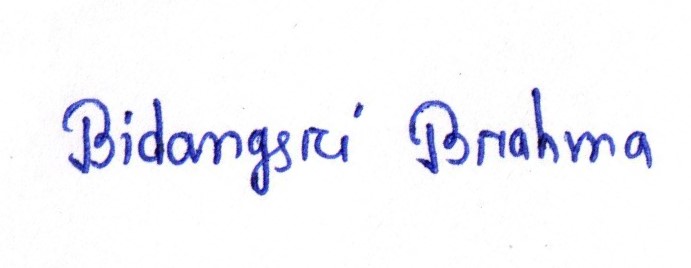 Bidangsri Brahma